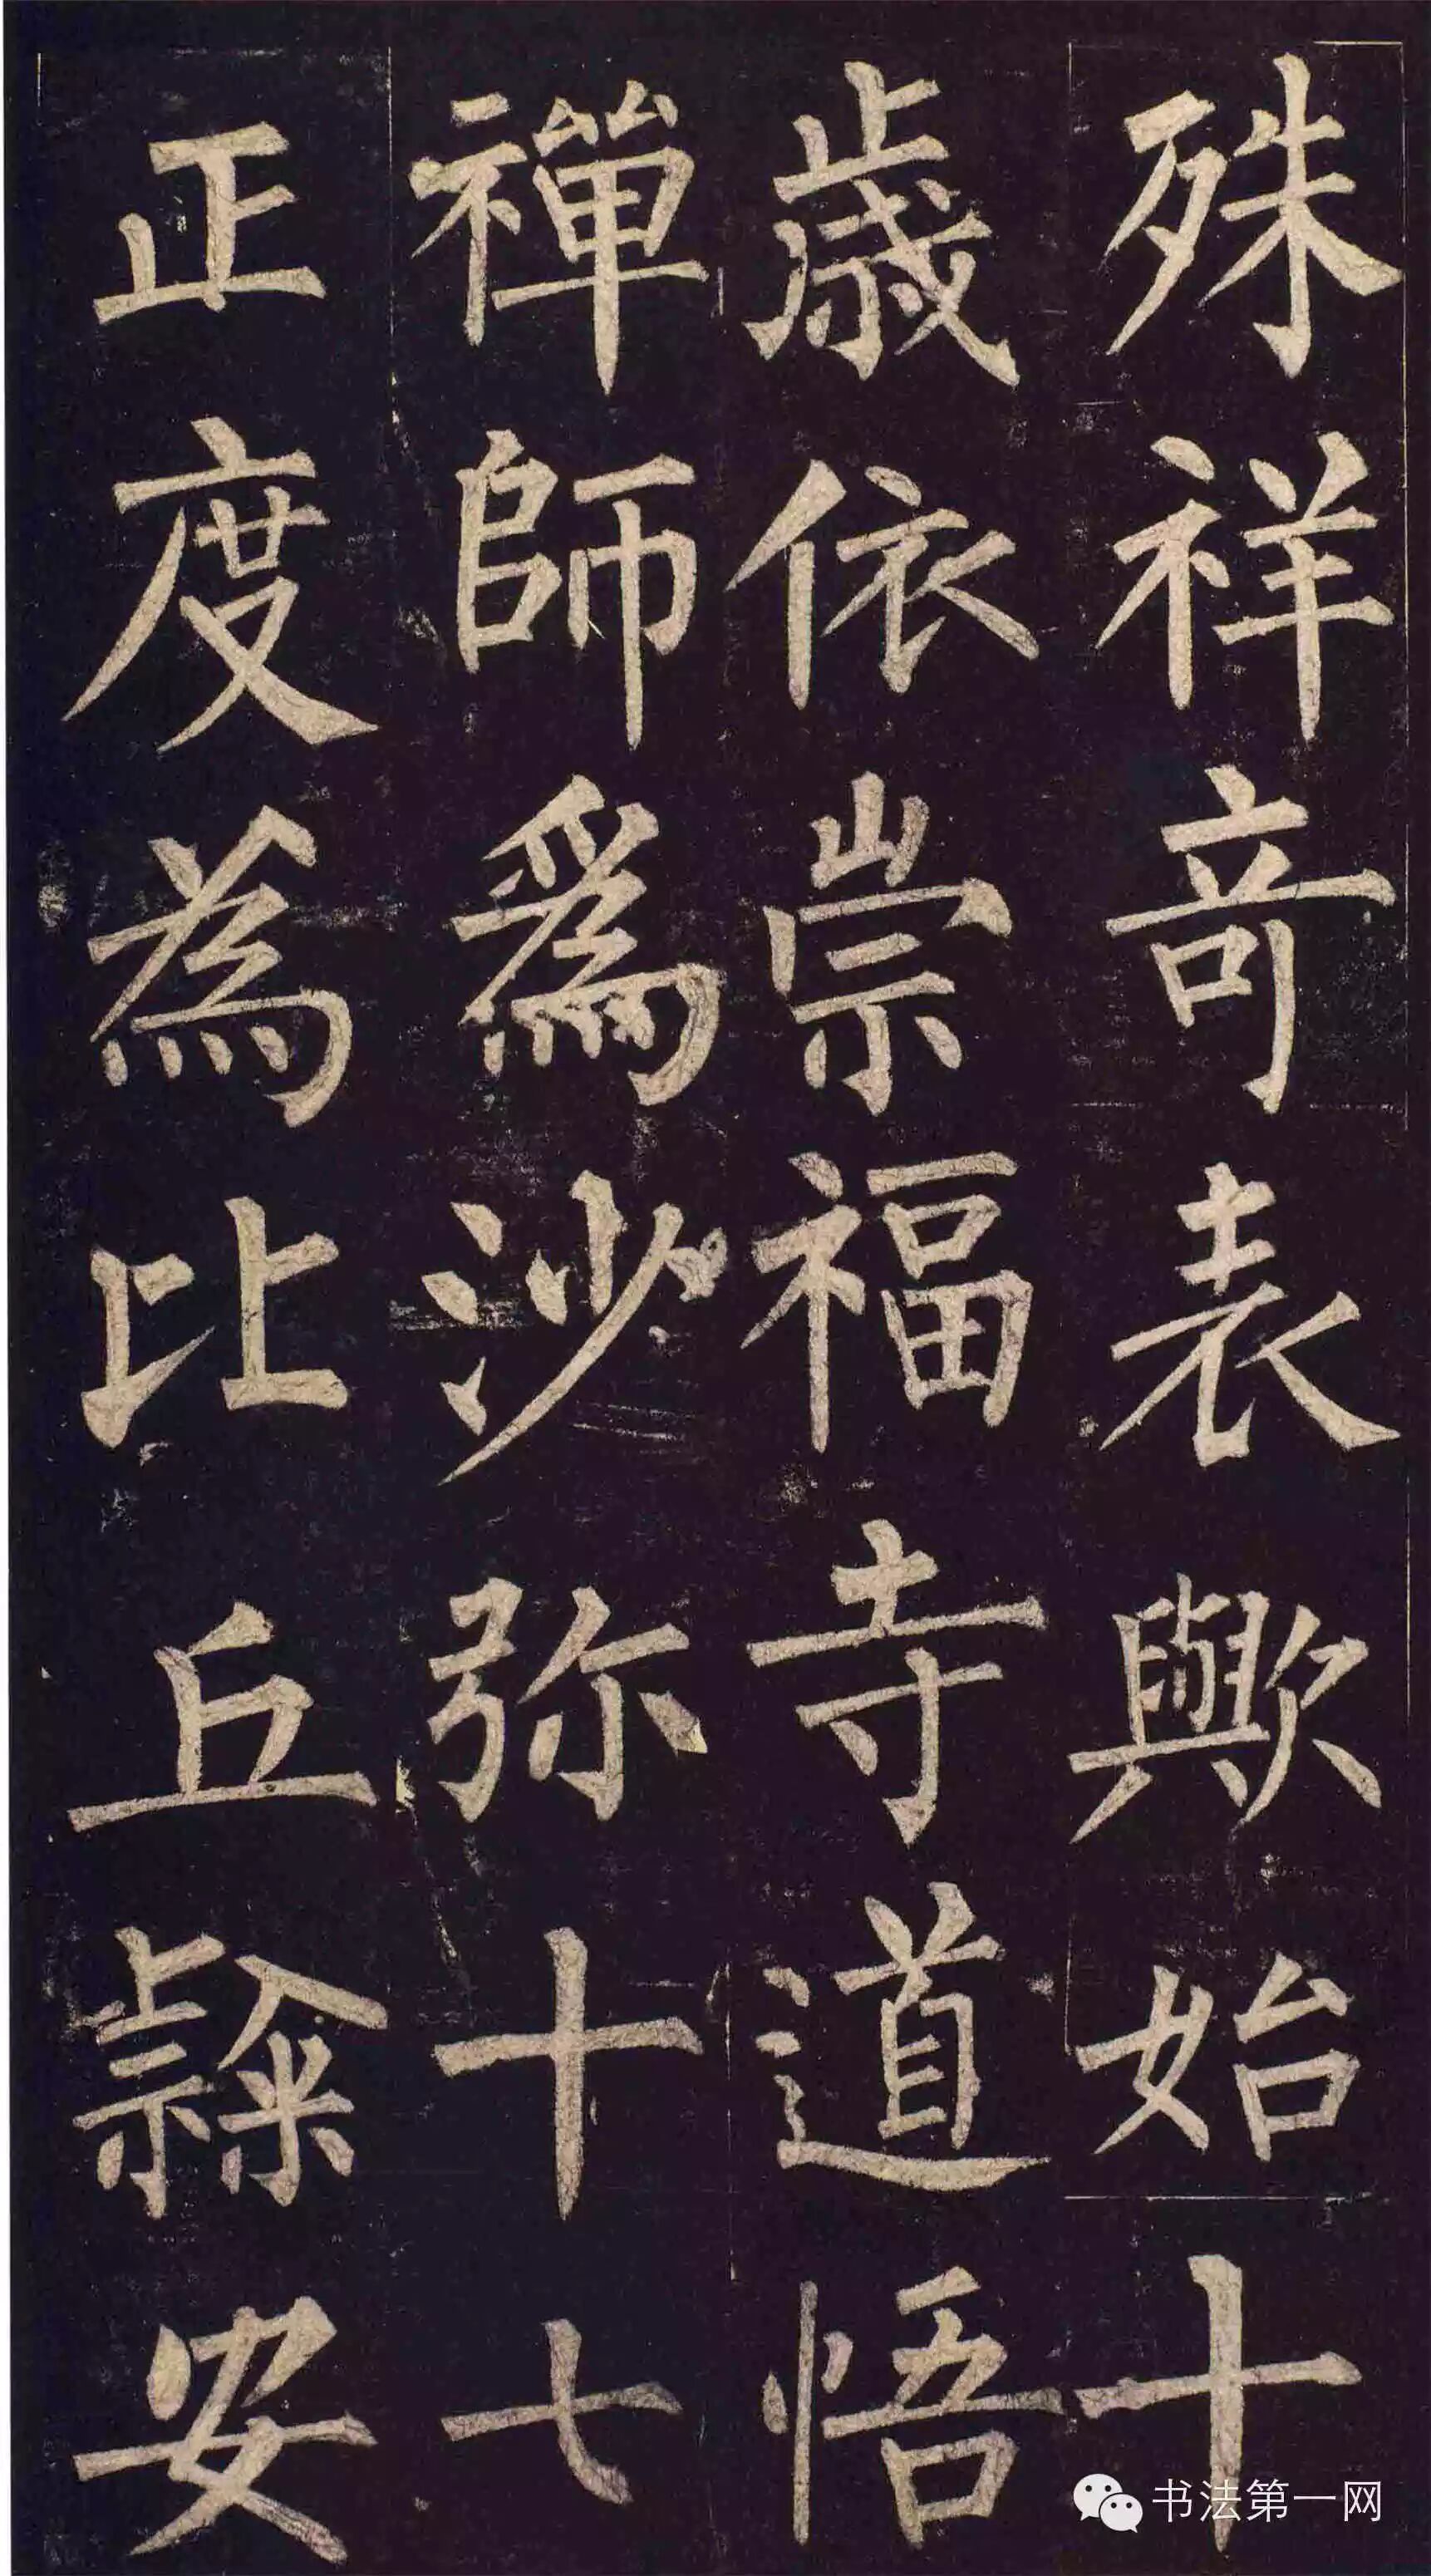 殊祥奇表歟始十
歲依崇福寺道悟
禪師爲沙弥十七
正度為比丘隸安
书法第一网